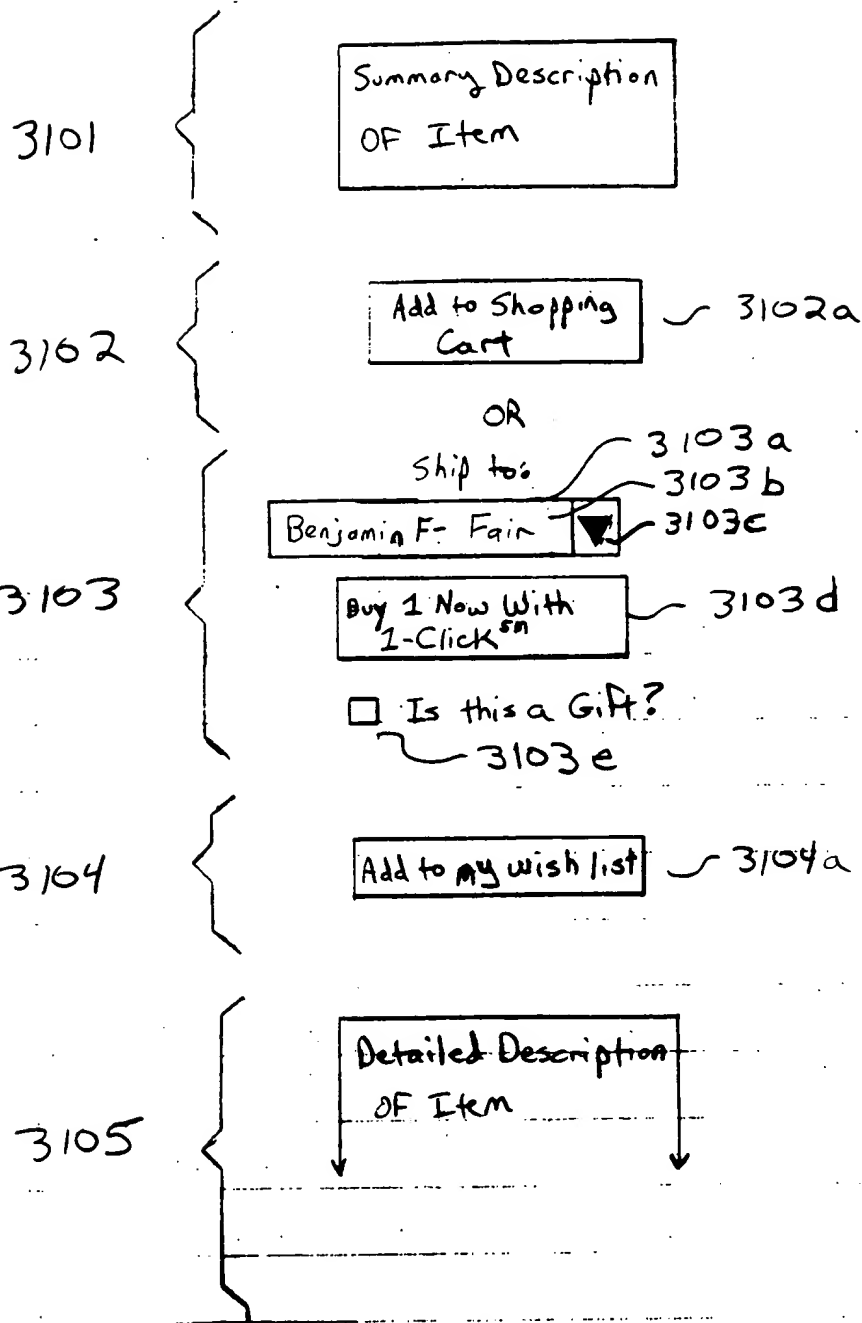 3101
Summary Description
OF Item
3102
Add to Shopping
Cart
3102a
OR
Ship to:
3103a
3103b
Benjamin F- Fair
3103c
3103
Buy 1 Now With
1-Click sm
3103d
Is this a Gift?
3103e
3104
Add to my wish list
3104a
3105
Detailed Description
OF Item